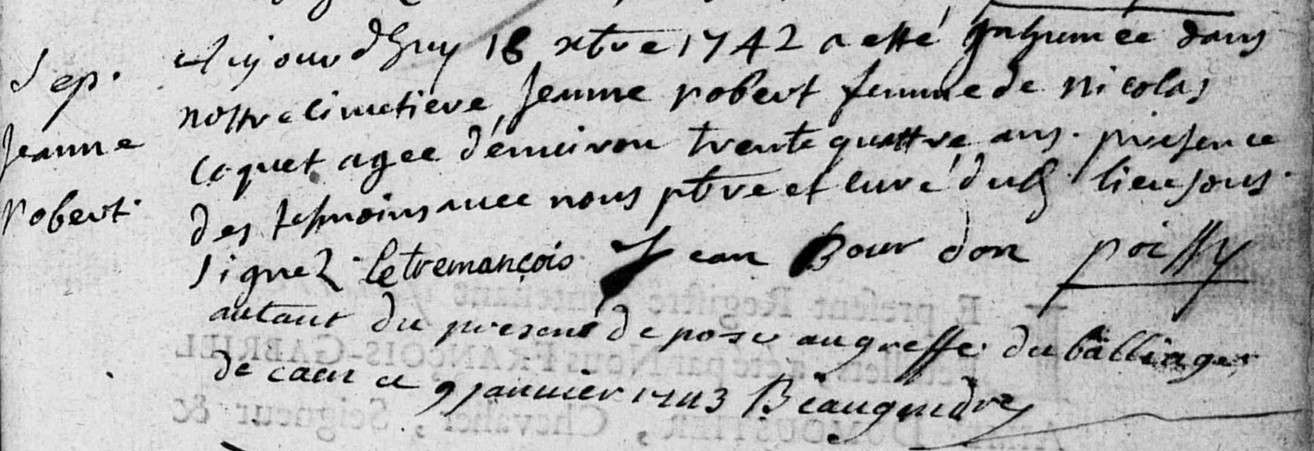 Sep.
Jeanne
robert.
Aujourdhuy 18 xbre 1742 a esté Inhumée dans
nostre cimetiere Jeanne robert femme de Nicolas
Coquet agée d'enuiron trente quattre ans. presence
des tesmoins auec nous pbre et curé dud. lieu sous.
signez. letremançois Jean Bourdon poissy
autant du present depose au greffe du balliage
de caen ce 9 januier 1743 Beaugendre
E present Registre contenant
Feuillets, a été par Nous FRANÇOIS-GABRIEL
, Chevalier, Seigneur &